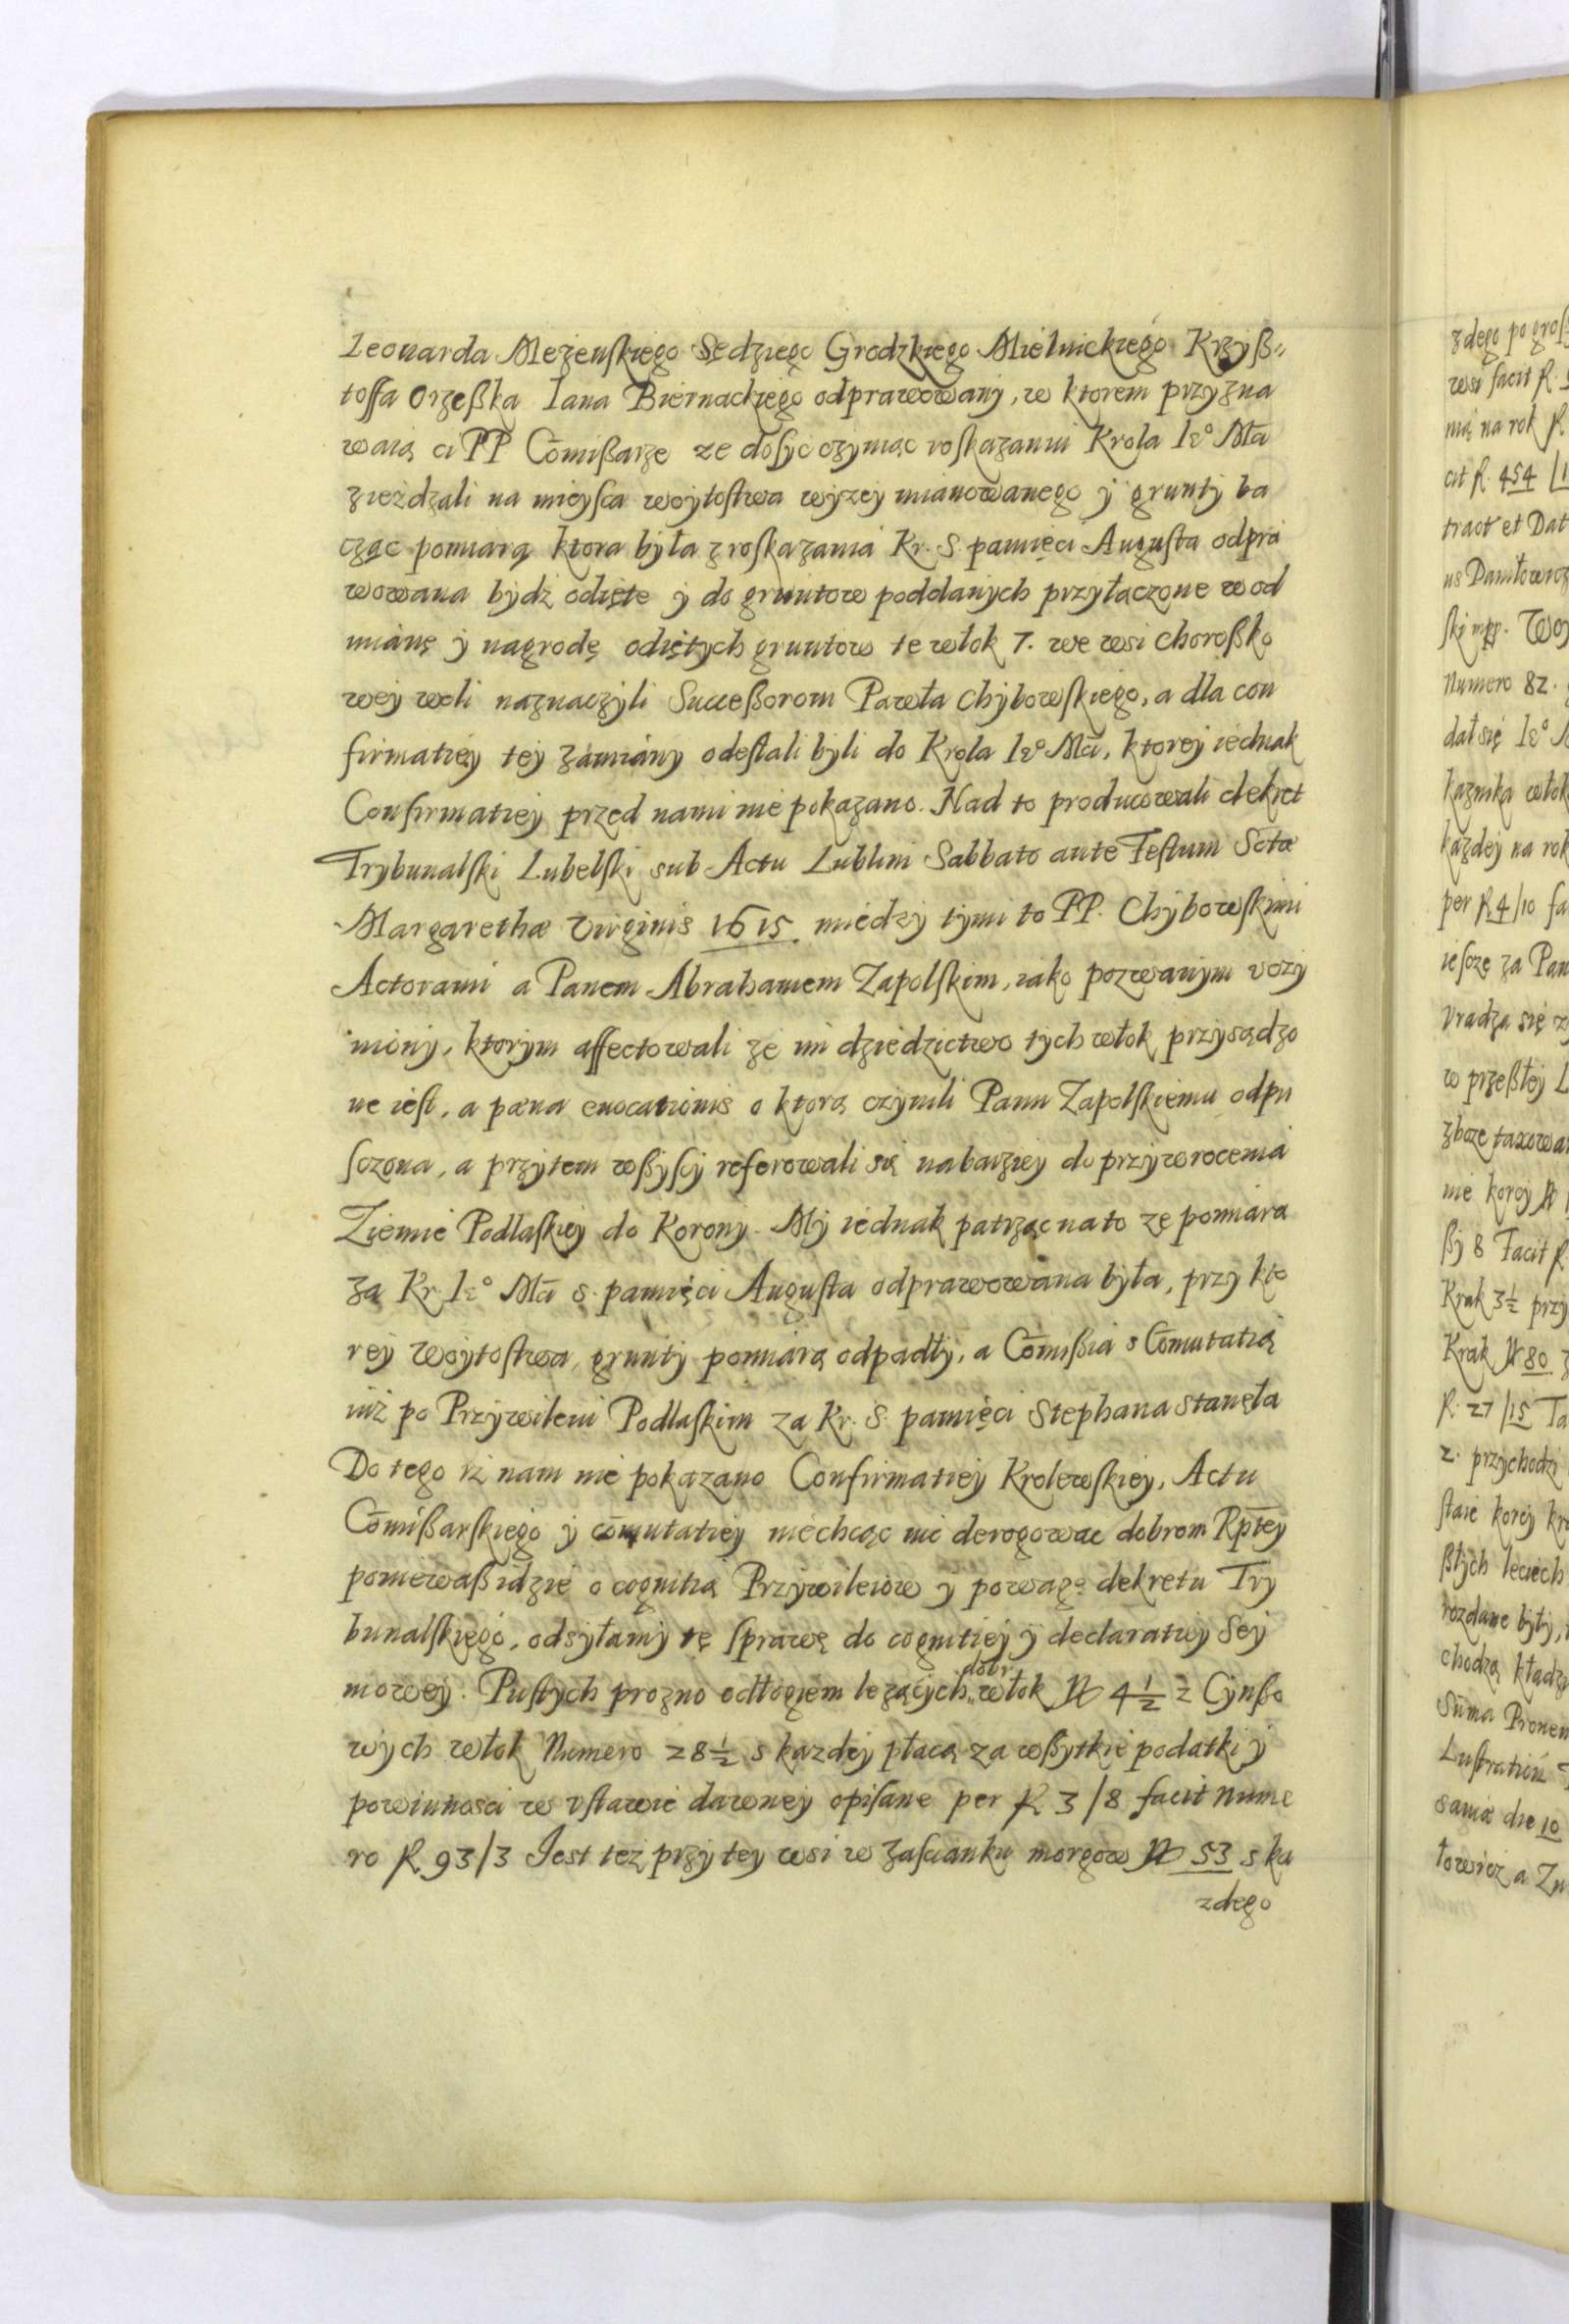 Leonarda Mężeńskiego Sędziego Grodzkiego Mielnickiego Krzyß-
toffa Orzeßka Iana Biernackiego odprawowany, w ktorem przyzna
waią ci PP Com̄ißarze ze dosyc czyniąc roskazaniu Krola Ieº Mči
zieżdzali na mieysca woytostwa wyzey mianowanego y grunty ba
cząc pomiarą ktora była z roskazania Kr. S. pamięci Augusta odpra
wowana bydz odięte y do gruntow poddanych przyłączone w od
mianę y nagrodę odiętych gruntow te włok 7. we wsi Choroßko
wey woli naznaczyli Succeßorom Pawła Chybowskiego, a dla con
firmatiey tey zamiany odesłali byli do Krola Ieº Mči, ktorey iednak
Confirmatiey przed nami nie pokazano. Nad to producowali dekret
Trybunalski Lubelski sub Actu Lublini Sabbato ante Festum Sctæ
Margarethæ Virginis 1615. miedzy tymi to PP. Chybowskimi
Actorami a Panem Abrahamem Zapolskim, iako pozwanym vczy
niony, ktorym affectowali ze im dziedzictwo tych włok przysądzo
ne iest, a pœna euocationis o ktorą czynili Panu Zapolskiemu odpu
sczona, a przytem wßyscy referowali się nabarziey do przywrocenia
Ziemie Podlaskiey do Korony. My iednak patrząc na to ze pomiara
za Kr. Ieº Mči S. pamięci Augusta odprawowana była, przy kto
rey Woytostwa grunty pomiarą odpadły, a Com̄ißia s Com̄utatią
iuż po Przywileiu Podlaskim za Kr. S. pamięci Stephana stanęła
Do tego iż nam nie pokazano Confirmatiey Krolewskiey, Actu
Com̄ißarskiego y com̄utatiey niechcąc nic derogowac dobrom Rptey
poniewaß idzie o cognitią Przywileiow y powagę dekretu Try
bunalskiego, odsyłamy tę sprawę do cognitiey y declaratiey Sey
mowey. Pustych prozno odłogiem lezących dobr włok N 4 1/2 z Cynßo
wych włok Numero 28 1/2 s kazdey płacą za wßytkie podatki y
powinnosci w vstawie dawney opisane per f. 3/8 facit nume
ro f. 93/3 Jest też przy tey wsi w zascianku morgow N 53 s ka
zdego
zdego po gros
wsi facit f.
nią na rok f.
cit f. 454
tract et Dat
us Daniłowicz
ski mpp. Woy
Numero 82.
dał się Ieº
kaznika włok
kazdey na rok
per f. 4/10 fa
iescze za Pan
Vradza się z
w przeßłey L
zboze taxowa
nie korcy N
ßy 8 Facit f.
Krak 3 1/2 przy
Krak N 80 z
f. 27/15 Ta
2. przychodzi
staie korcy kr
ßłych leciech
rozdane były,
chodzą kładz
Sum̄a Prouen
Lustratiey
sania die 10
towicz a Zy